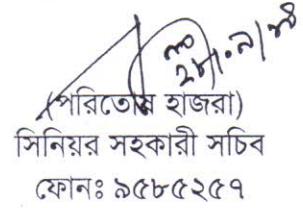 (পরিতোষ হাজরা)
সিনিয়র সহকারী সচিব
ফোনঃ ৯৫৮৫২৫৭